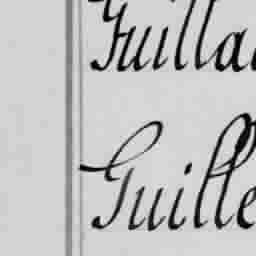 Guilla
Guille